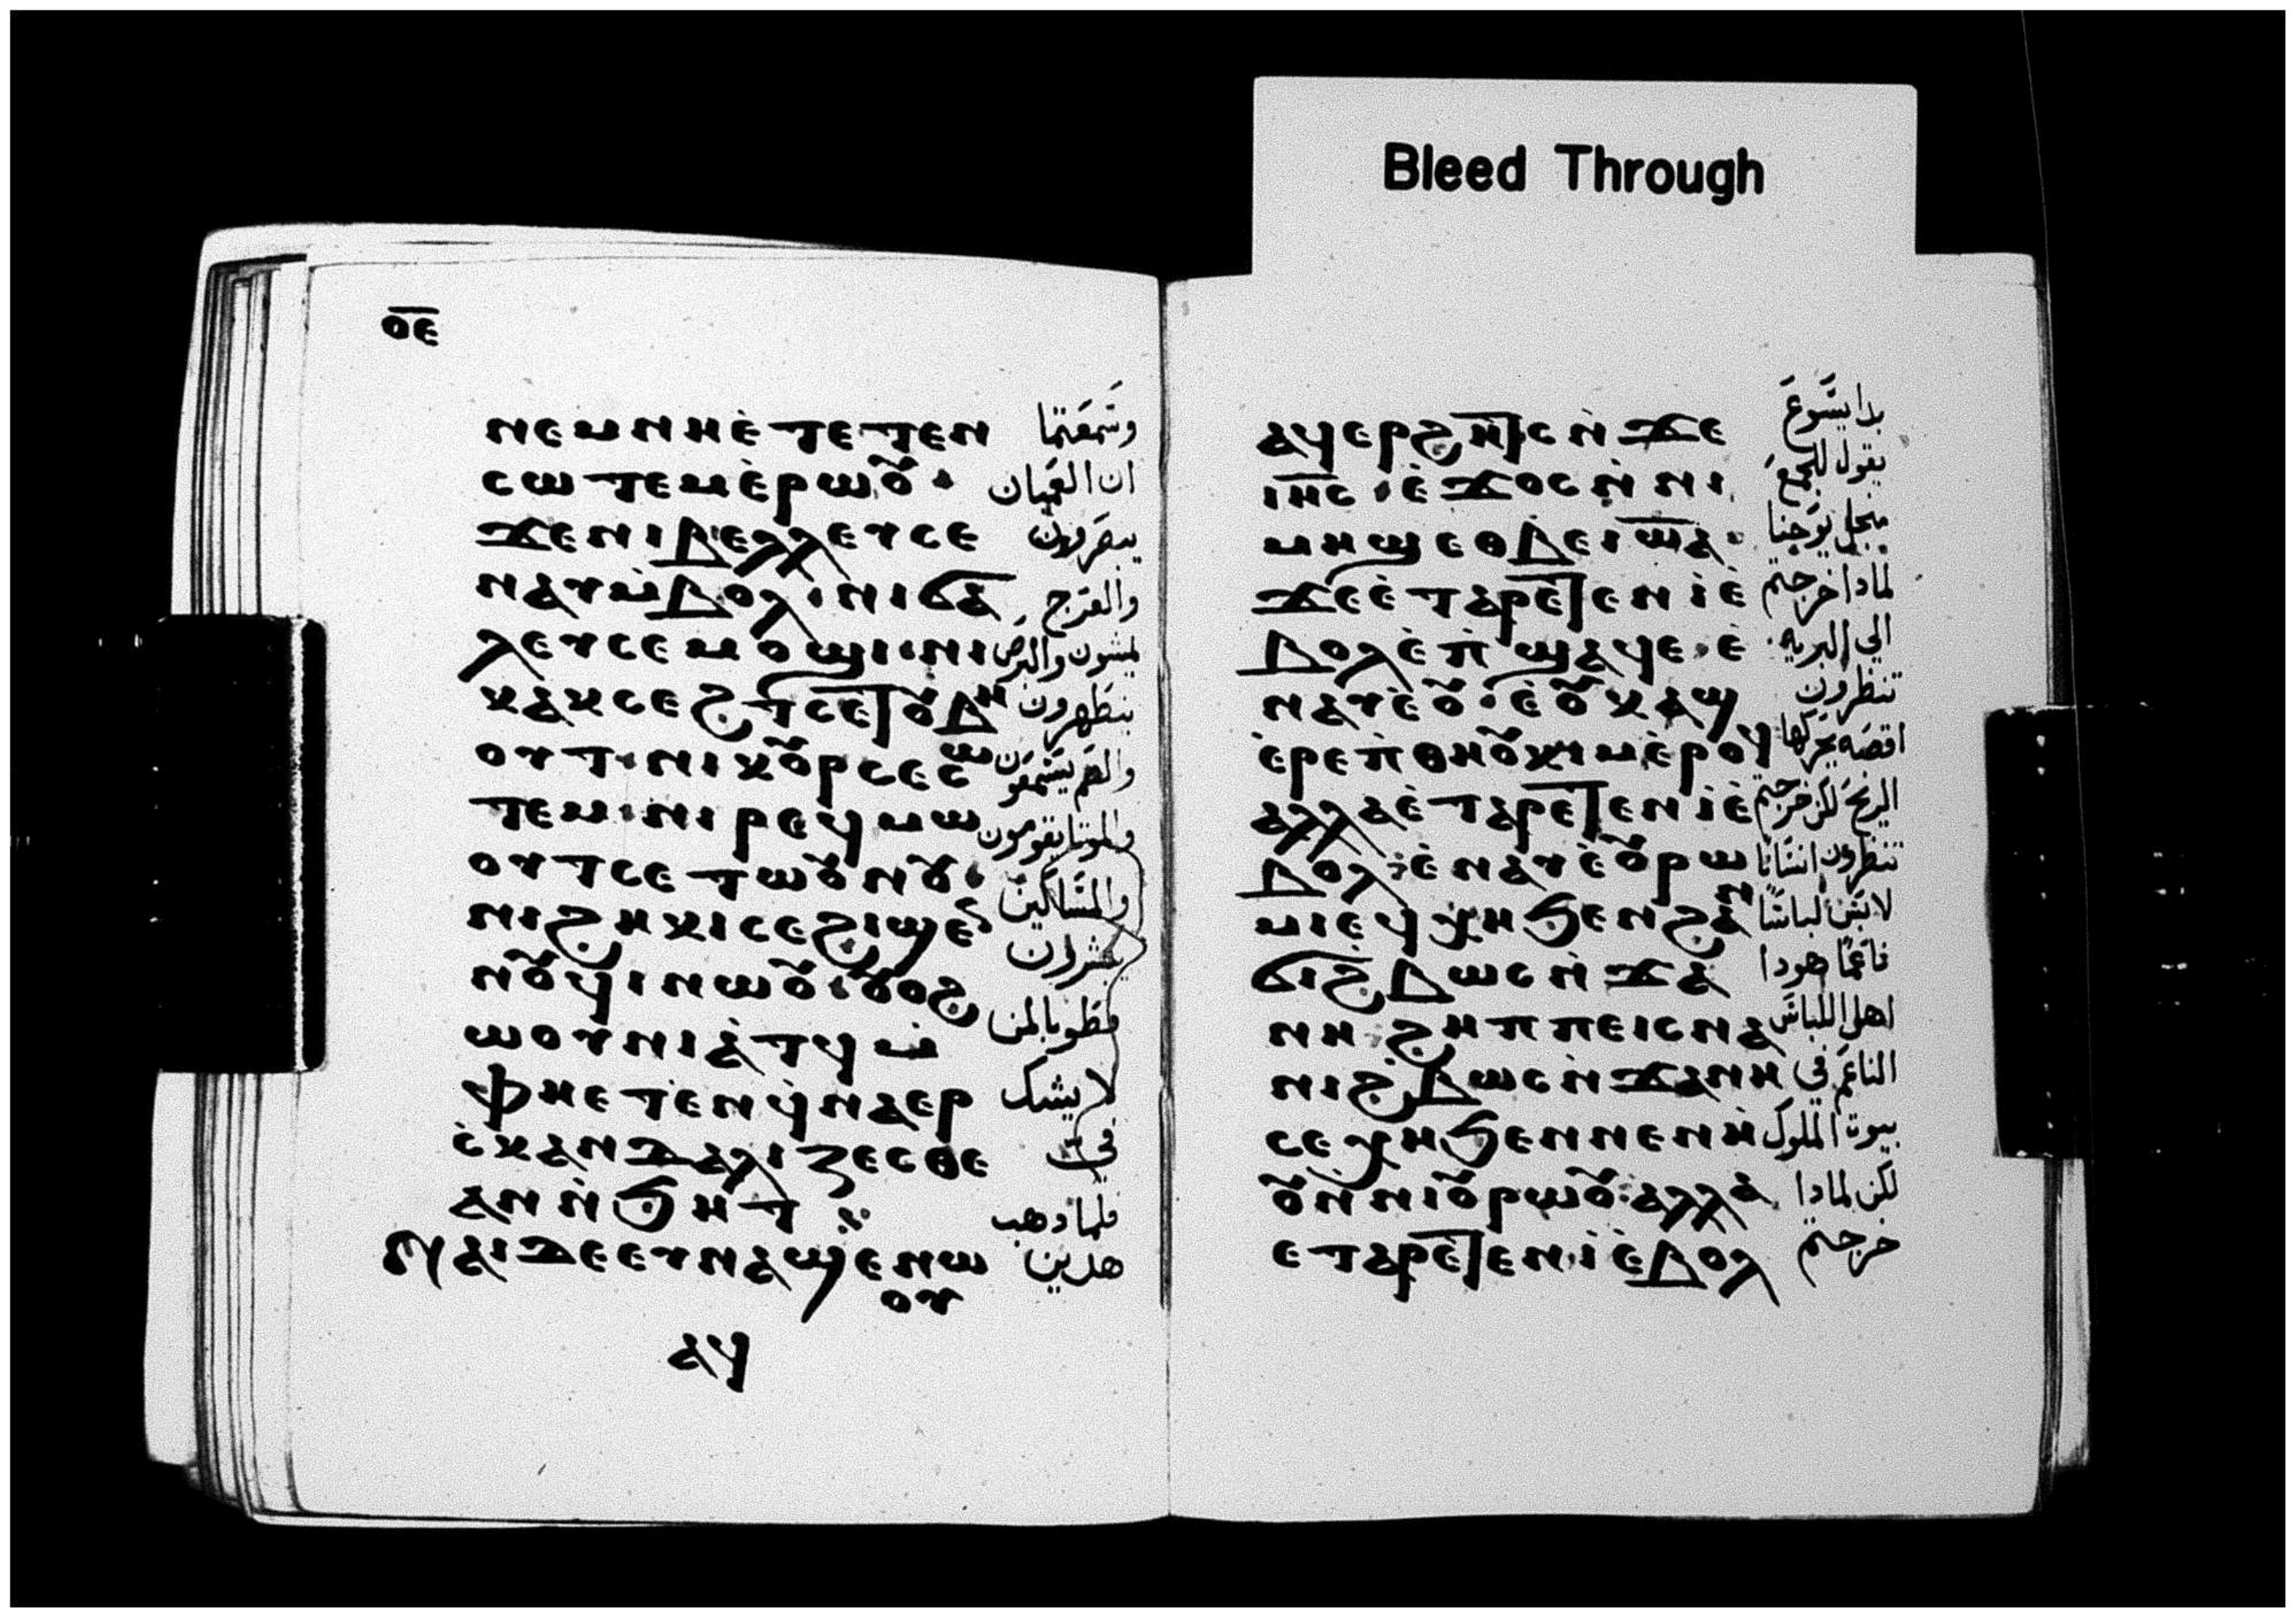 ⲟ̅ⲉ̅
ⲛⲉⲙⲛⲏⲉ̀ⲧⲉⲧⲉⲛ وسَّمعَتما
ⲥⲱⲧⲉⲙⲉ̀ⲣⲱⲟⲩ· ان العَميان
ϫⲉⲛⲓⲃⲉⲗⲗⲉⲩⲥⲉ يبصَرون
ⲛⲁⲩⲙ̀ⲃⲟⲗ·ⲛⲓϭⲁ والعَرج
ⲗⲉⲩⲥⲉⲙⲟϣⲓ·ⲛⲓ يمشون والبرص
ⲕⲁⲕⲥⲉϩⲧⲥⲉⲧⲟⲩⲃⲏ يتطهرون
ⲟⲩⲧ·ⲛⲓⲕⲟⲩⲣⲥⲉⲥⲱ والصَم يسَّمعَون
ⲧⲉⲙ·ⲛⲓⲣⲉϥⲙⲱ والموتا يقومون
ⲟⲩⲧⲥⲉⲧⲱⲟⲩⲛⲟⲩ· والمسَّاكين
ⲛⲓϩⲏⲕⲓⲥⲉϩⲓϣⲉⲛ يبشرون
ⲛⲟⲩϥⲓⲛⲱⲟⲩ·ⲟⲩⲟϩ فطوبا لمن
ⲱⲟⲩⲛⲓⲁ̀ⲧϥⲙ̀ لا يشك
ⲫⲏⲉⲧⲉ̀ⲛϥ̀ⲛⲁⲉⲣ فيَّ
ⲥ̀ⲕⲁⲛⲇⲁⲗⲓⲍⲉⲥⲑⲉ
ⲁⲛⲛ̀ϧⲏⲧ فلما دهب
ⲛⲁⲓⲇⲉⲉⲩⲛⲁϣⲉⲛⲱ هدين
ⲟⲩ
ⲁϥ
Bleed Through
ⲁϥⲉⲣϩⲏⲧⲥⲛ̀ϫⲉ بدا يسَّوعَ
ⲓⲏ̅ⲥ·ⲉ̀ϫⲟⲥⲛ̀ⲛⲓ يقول للجمعَ
ⲙⲏϣⲉⲑⲃⲉⲓⲱ̅ⲁ· منجل يوحنا
ϫⲉⲉ̀ⲧⲁⲣⲉⲧⲉⲛⲓ̀ⲉ̀ لمادا خرجتم
ⲃⲟⲗⲉ̀ⲡ̀ϣⲁϥⲉ·ⲉ̀ الي البريه
ⲛⲁⲩⲉ̀ⲟⲩ·ⲉ̀ⲟⲩⲕⲁϣ تنظرون
ⲉ̀ⲣⲉⲡ̀ⲑⲏⲟⲩⲕⲓⲙⲉ̀ⲣⲟϥ اقصَه يحَركها
ⲁⲗⲗⲁⲉ̀ⲧⲁⲣⲉⲧⲉⲛⲓ̀ⲉ̀ الريحَ لكن خرجتم
ⲃⲟⲗ·ⲉ̀ⲛⲁⲩⲉ̀ⲟⲩⲣⲱ تنظرون انسَّانًا
ⲙⲓⲉϥϫⲏϧⲉⲛϩⲁⲛ لابسَّ لباسًّا
ϭⲓϩ̀ⲃⲱⲥⲛ̀ϫⲁ ناعَمًا هودا
ⲛⲏ ϩⲏⲡⲡⲉⲓⲥⲛⲁ اهل اللباسَ
ⲛⲓϩ̀ⲃⲱⲥⲛ̀ϫⲁⲛⲏ الناعَم في
ⲥⲉϫⲏϧⲉⲛⲛⲉⲛⲏ̀ بيوت الملوك
ⲟⲩⲛ̀ⲛⲓⲟⲩⲣⲱⲟⲩ·ⲁⲗⲗⲁ لكن لمادا
ⲉⲧⲁⲣⲉⲧⲉⲛⲓ̀ⲉ̀ⲃⲟⲗ خرجتم